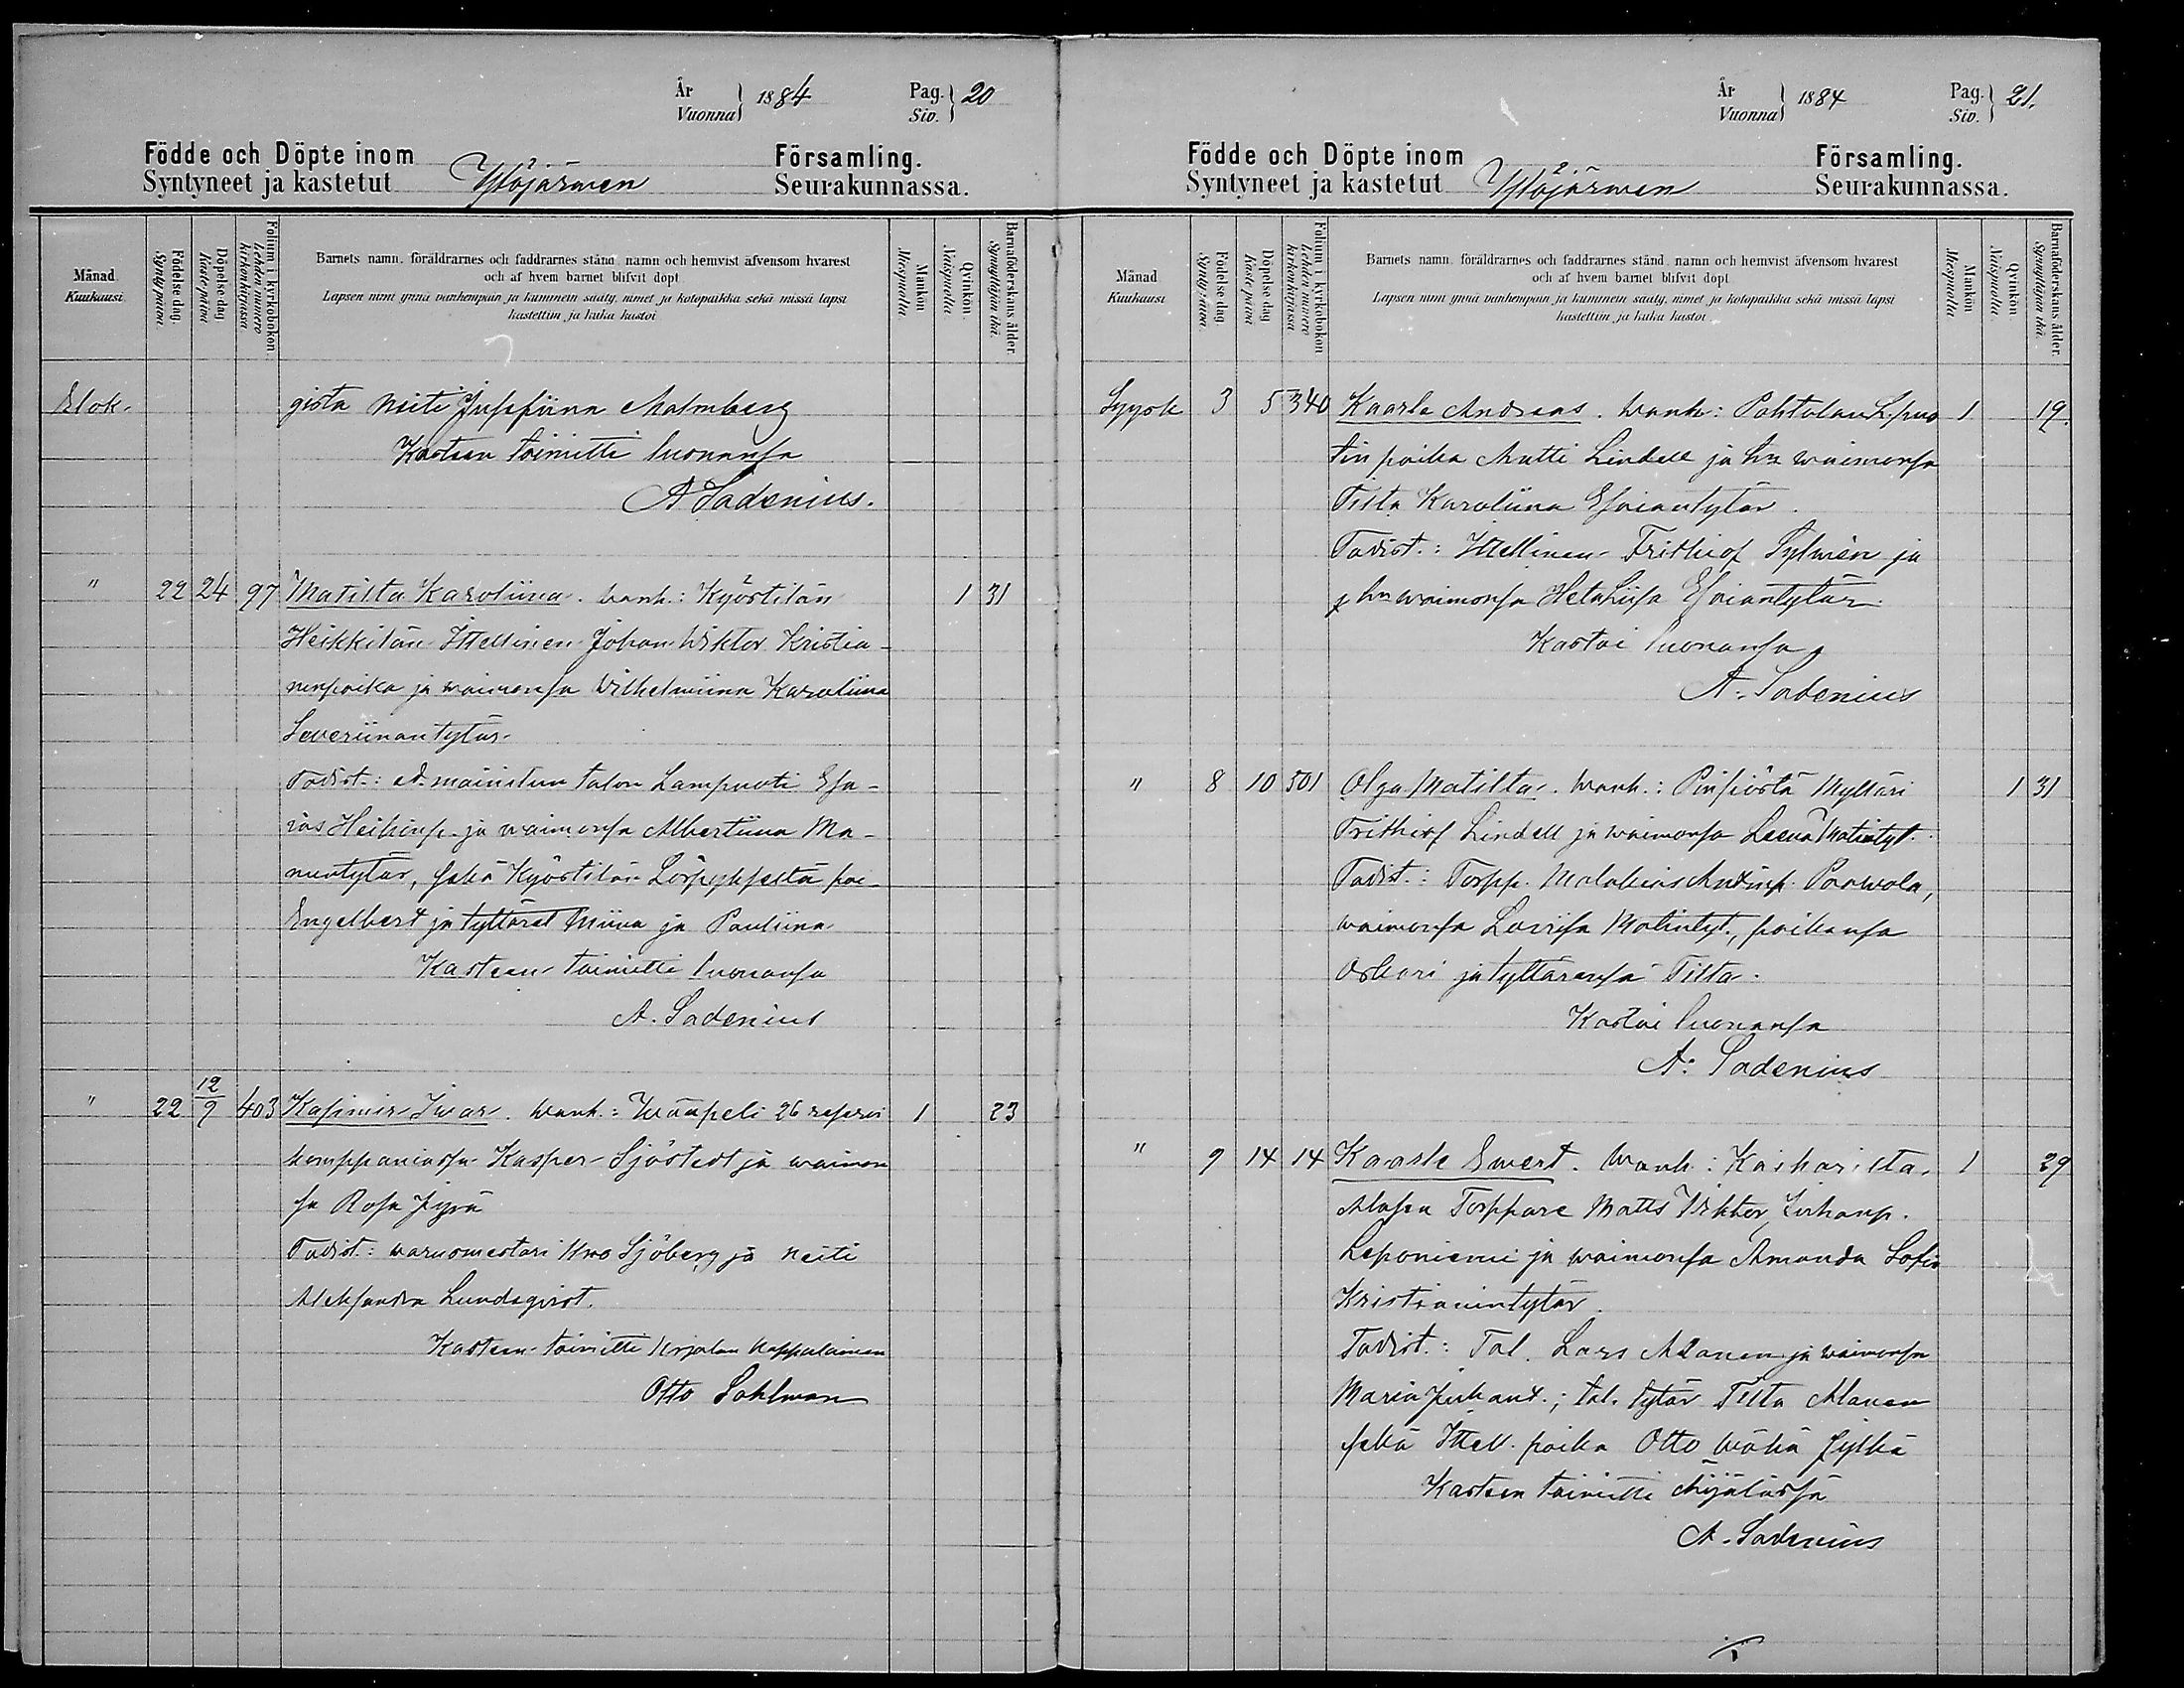 År
Vuonna
1884
Pag.
Siv.
20
Födde och Döpte inom
Syntyneet ja kastetut
Ylöjärwen
Församling.
Seurakunnassa.
Månad.
Kuukausi.
Födelse dag.
Synty päivä.
Döpelse dag
Kaste päivä
Folium i kyrkobokon.
Lehden numero
kirkonkirjassa.
Barnets namn, föräldrarnes och faddrarnes stånd, namn och hemvist äfvensom hvarest
och af hvem barnet blifvit döpt
Lapsen nimi ynnä vanhempain ja kummein sääty, nimet ja kotopaikka sekä missä lapsi
kastettiin ja kuka kastoi
Mankön
Miespuolia.
Qvinkön.
Naispuolia.
Barnaföderskans ålder.
Synnyttäjän ikä.
Elok.
gista Neiti Josefiina Malmberg
Kasteen toimitti luonansa
A Sadenius.
" 22 24 97 Matilta Karoliina. Wanh.: Kyöstilän 1 31
Heikkilän Ittellinen Johan Wiktor Kristia-
nenpoika ja waimonsa Wilhelmiina Karoliina
Severiinan tytär.
Todist.: ed. mainitun talon Lampuoti Esa-
ias Heikinp. ja waimonsa Albertiina Ma-
nuntytär, sekä Kyöstilän poi-
Engelbert ja tyttäret Miina ja Pauliina
Kasteen toimitti luonansa
A. Sadenius
" 22 12/9 403 Kasimir Iwar. Wanh.: Wääpeli 26 reserwi 1 23
komppaniassa Kasper Sjöstedt ja waimon
sa Rosa
Todist.: waruomestari Uno Sjöberg ja neiti
Aleksandra Lundqvist.
Kasteen toimitti Kirjalan kappalainen
Otto Sohlman
År
Vuonna
1884
Pag.
Siv.
21.
Födde och Döpte inom
Syntyneet ja kastetut
Ylöjärwen
Församling.
Seurakunnassa.
Månad
Kuukausi
Födelse dag.
Synty päivä.
Döpelse dag
Kaste päivä
Folium i kyrkobokon
Lehden numero
kirkonkirjassa
Barnets namn, föräldrarnes och faddrarnes stånd, namn och hemvist äfvensom hvarest
och af hvem barnet blifvit döpt
Lapsen nimi ynnä vanhempain ja kummein sääty, nimet ja kotopaikka sekä missä lapsi
kastettiin ja kuka kastoi
Mankön
Miespuolia
Qvinkön
Naispuolia
Barnaföderskans ålder.
Synnyttäjän ikä.
Syysk 3 5 340 Kaarle Andreas. Wanh.: Pohtolan L.puo 1 19.
tin poika Matti Lindell ja hn waimonsa
Tilta Karoliina Esaiantytär.
Todist.: Ittellinen Frithiof Sylwén ja
j hn waimonsa Heta Liisa Esaiantytär
Kastoi luonansa
A. Sadenius
" 8 10 501 Olga Matilta. Wanh.: Pinsiöstä Mylläri 1 31
Frithiof Lindell ja waimonsa Leena Matintyt.
Todist.: Torpp. Malakias Antinp. Paawola,
waimonsa Loviisa Matintyt., poikansa
Oskari ja tyttärensä Tilta.
Kastoi luonansa
A. Sadenius
" 9 14 14 Kaarle Ewert. Wanh: Kaiharilta 1 29
Alasen Torppare Matts Viktor Juhanp.
Leponiemi ja waimonsa Amanda Sofia
Kristianintytär.
Todist.: Tal. Lars Alanen ja waimonsa
Maria Juhant.; tal. tytär Tilta Alanen
sekä Ittell. poika Otto Wähä Jylhä
Kasteen toimitti Mijälässä
A. Sadenius